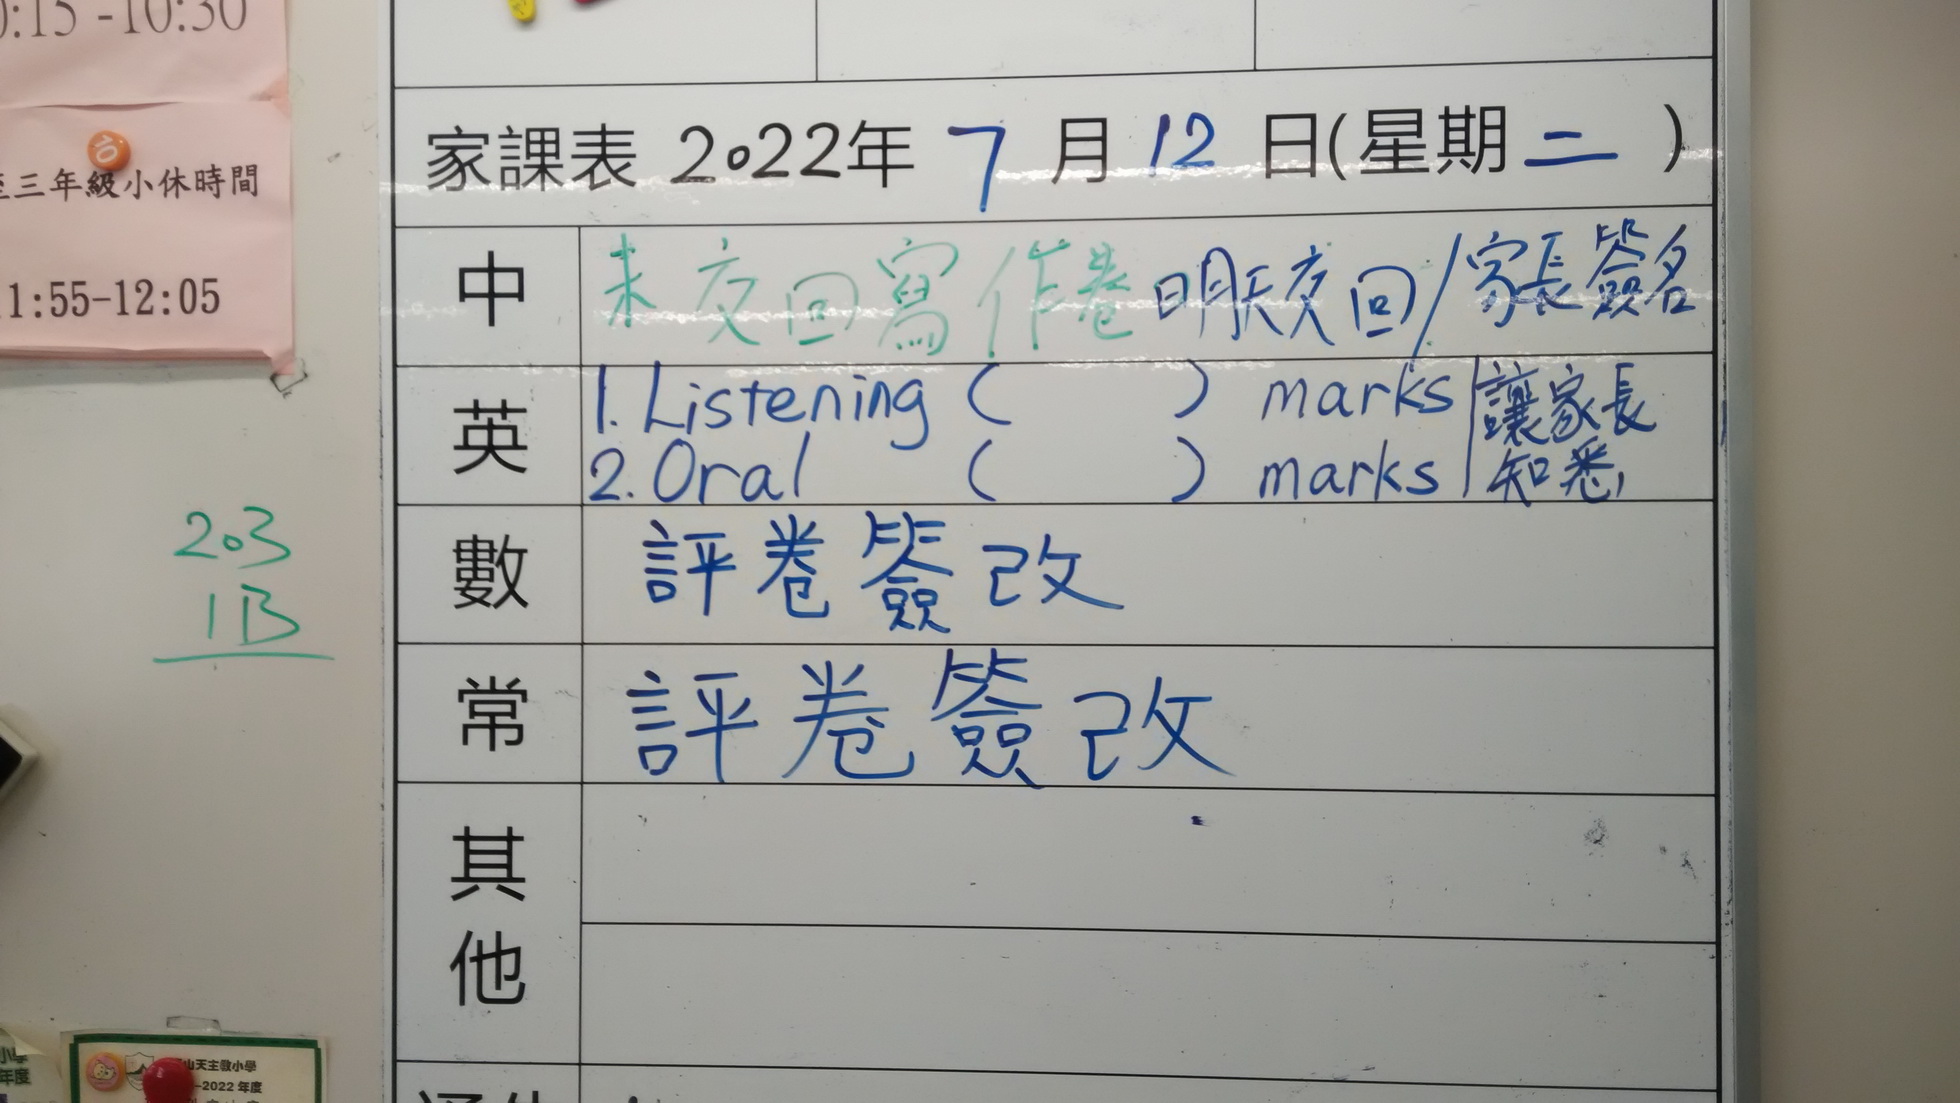 :15-10:30
三年級小休時間
1:55-12:05
203
1B
家課表 2022年 7 月 12 日(星期二)
中 未交回寫作卷明天交回/家長簽名
英 1. Listening ( ) marks 讓家長
2. Oral ( ) marks 知悉
數 評卷簽改
常 評卷簽改
其
他
小學
年度
山天主教小學
-2022 年度